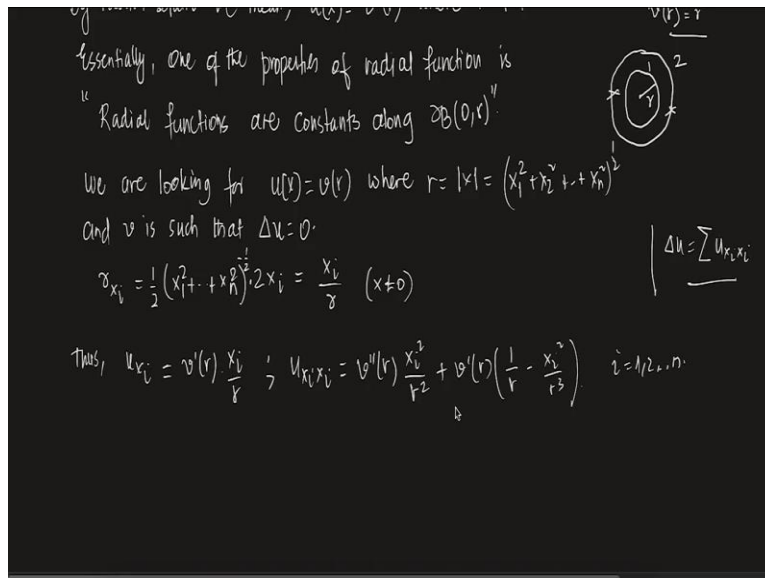 v(r) = r
Essentially, one of the properties of radial function is
"Radial functions are constants along ∂B(0,r)"
1 2
r
we are looking for u(x) = v(r) where r = |x| = (x₁² + x₂² + .. + xₙ²)^½
and v is such that Δu = 0.
Δu = ∑ u_{xᵢxᵢ}
r_{xᵢ} = ½ (x₁² + .. + xₙ²)^{-½} . 2xᵢ = xᵢ/r (x≠0)
Thus, u_{xᵢ} = v'(r) . xᵢ/r ; u_{xᵢxᵢ} = v''(r) xᵢ²/r² + v'(r) (1/r - xᵢ²/r³) i = 1,2,..n.